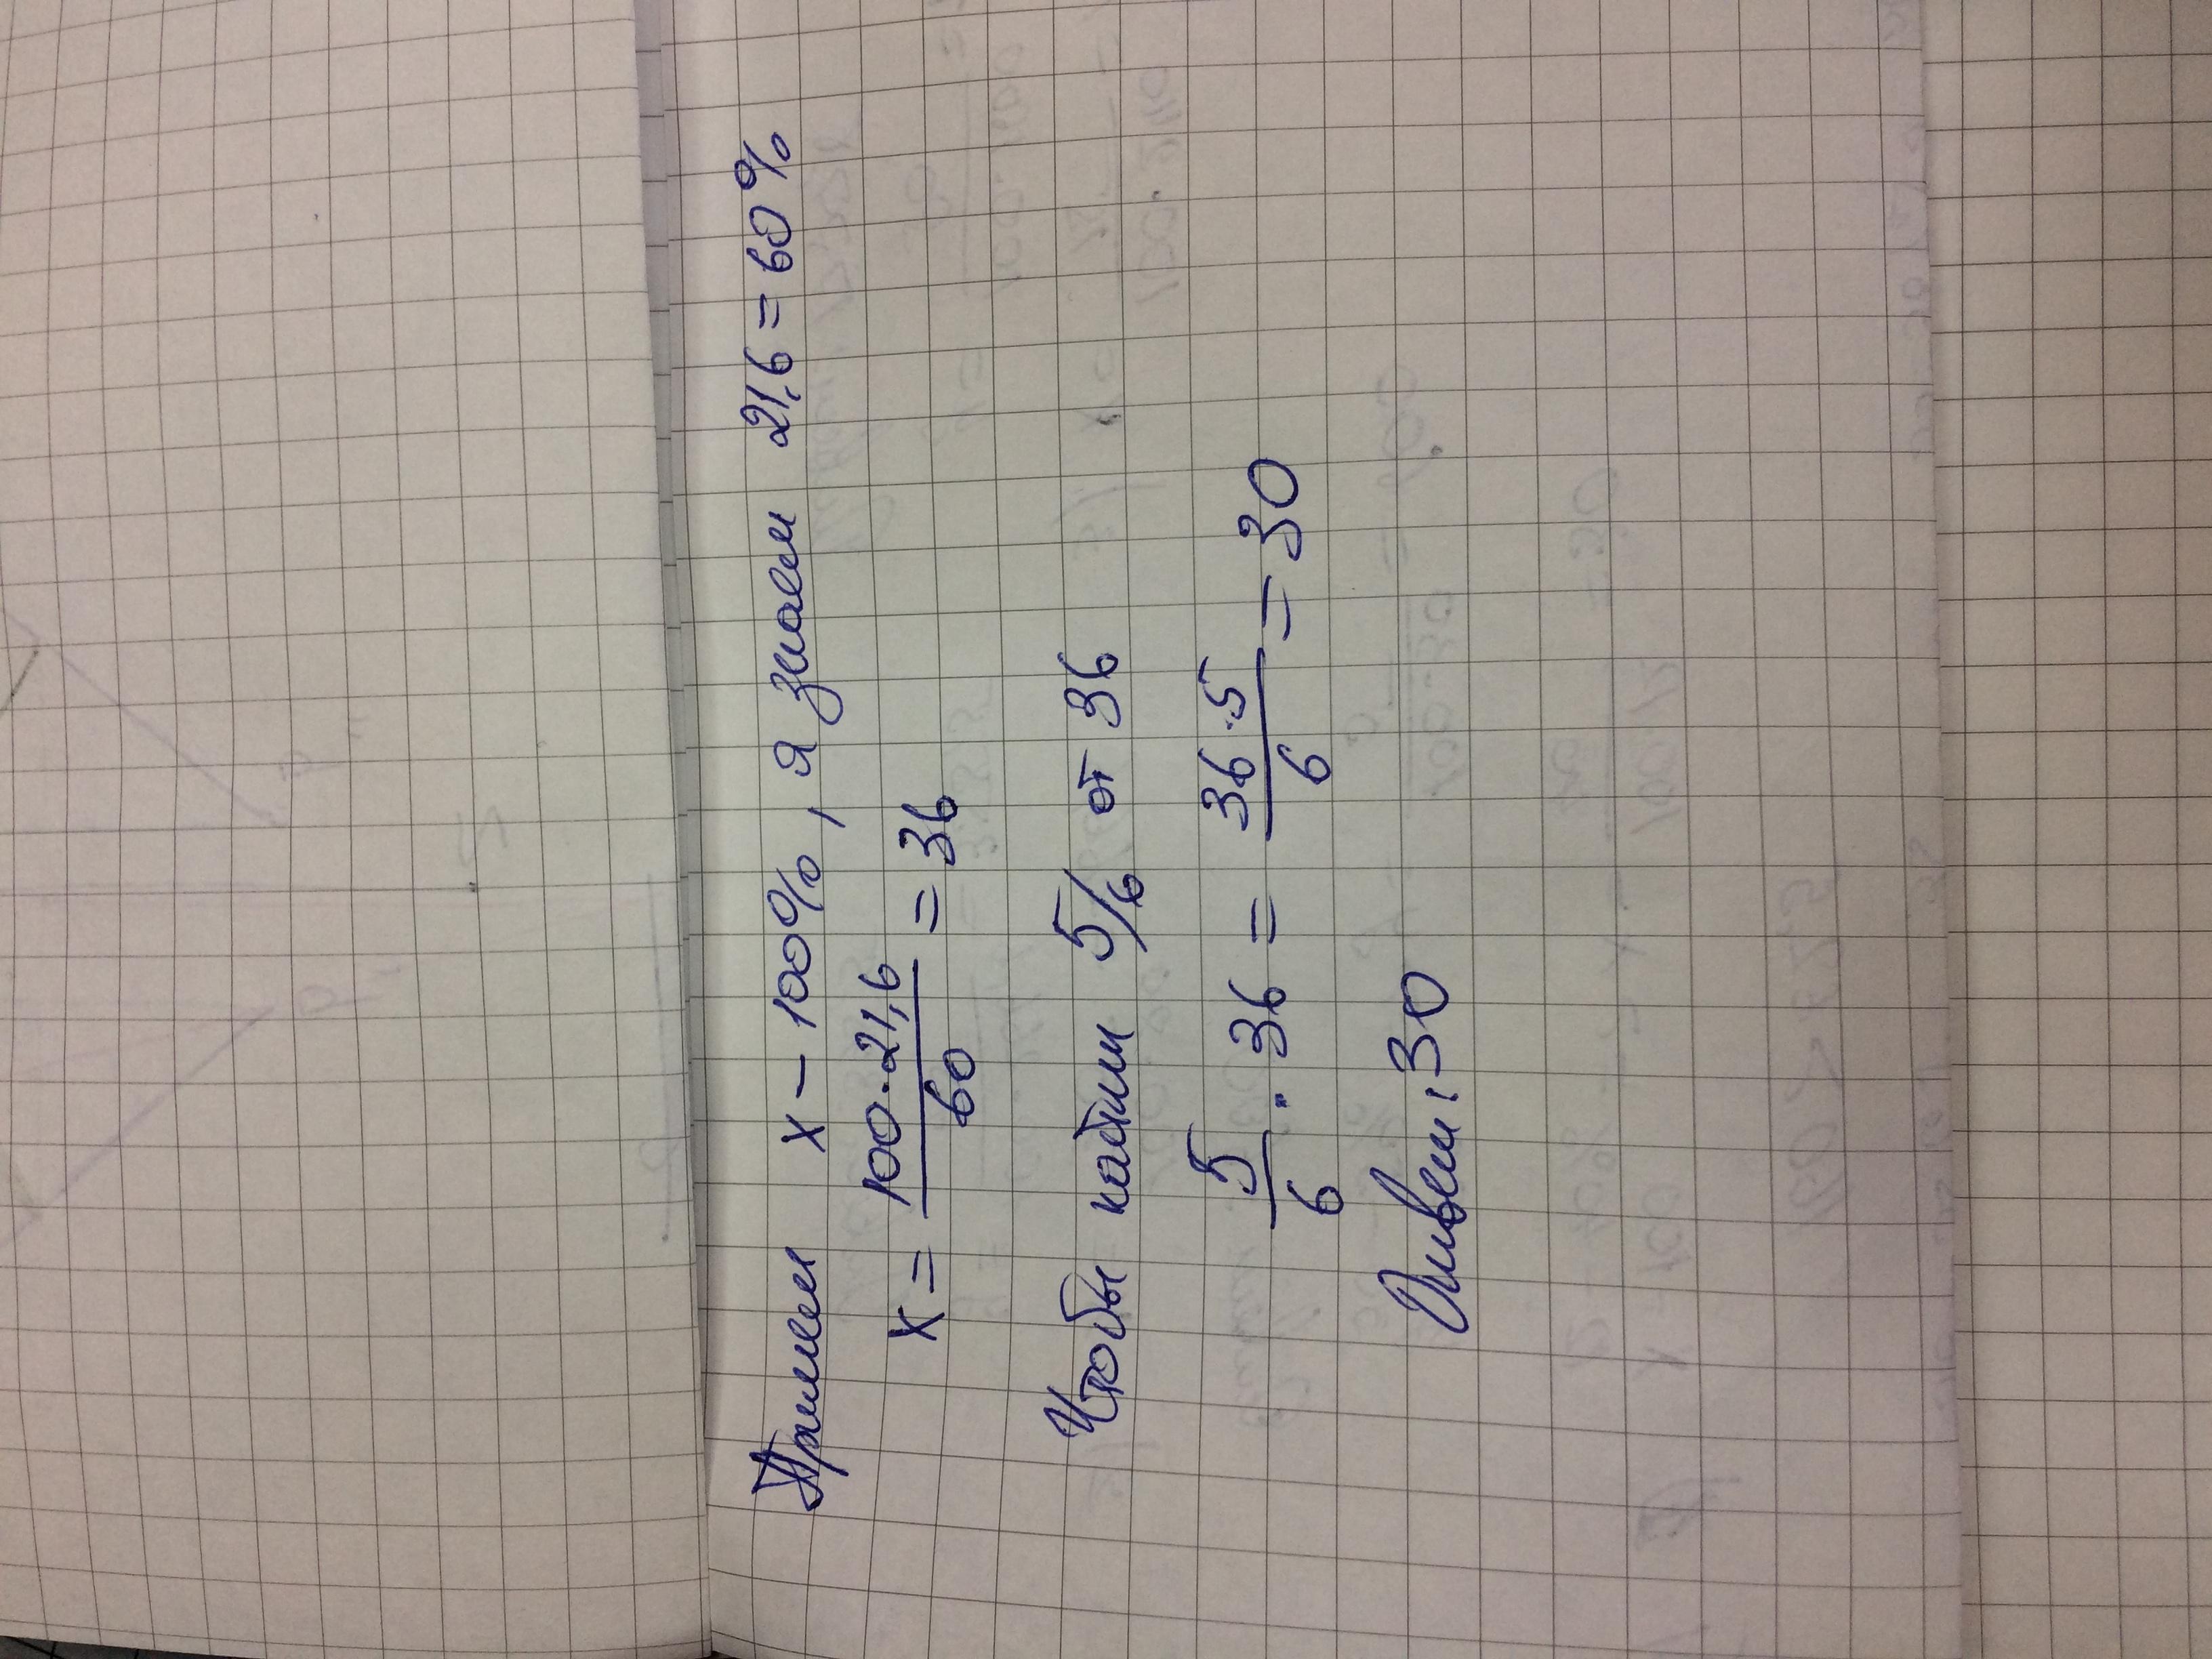 Примем x – 100%, я знаем 21,6 = 60%
x = 100·21,6 / 60 = 36
Чтобы найти 5/6 от 36
5/6 · 36 = 36·5 / 6 = 30
Ответ: 30